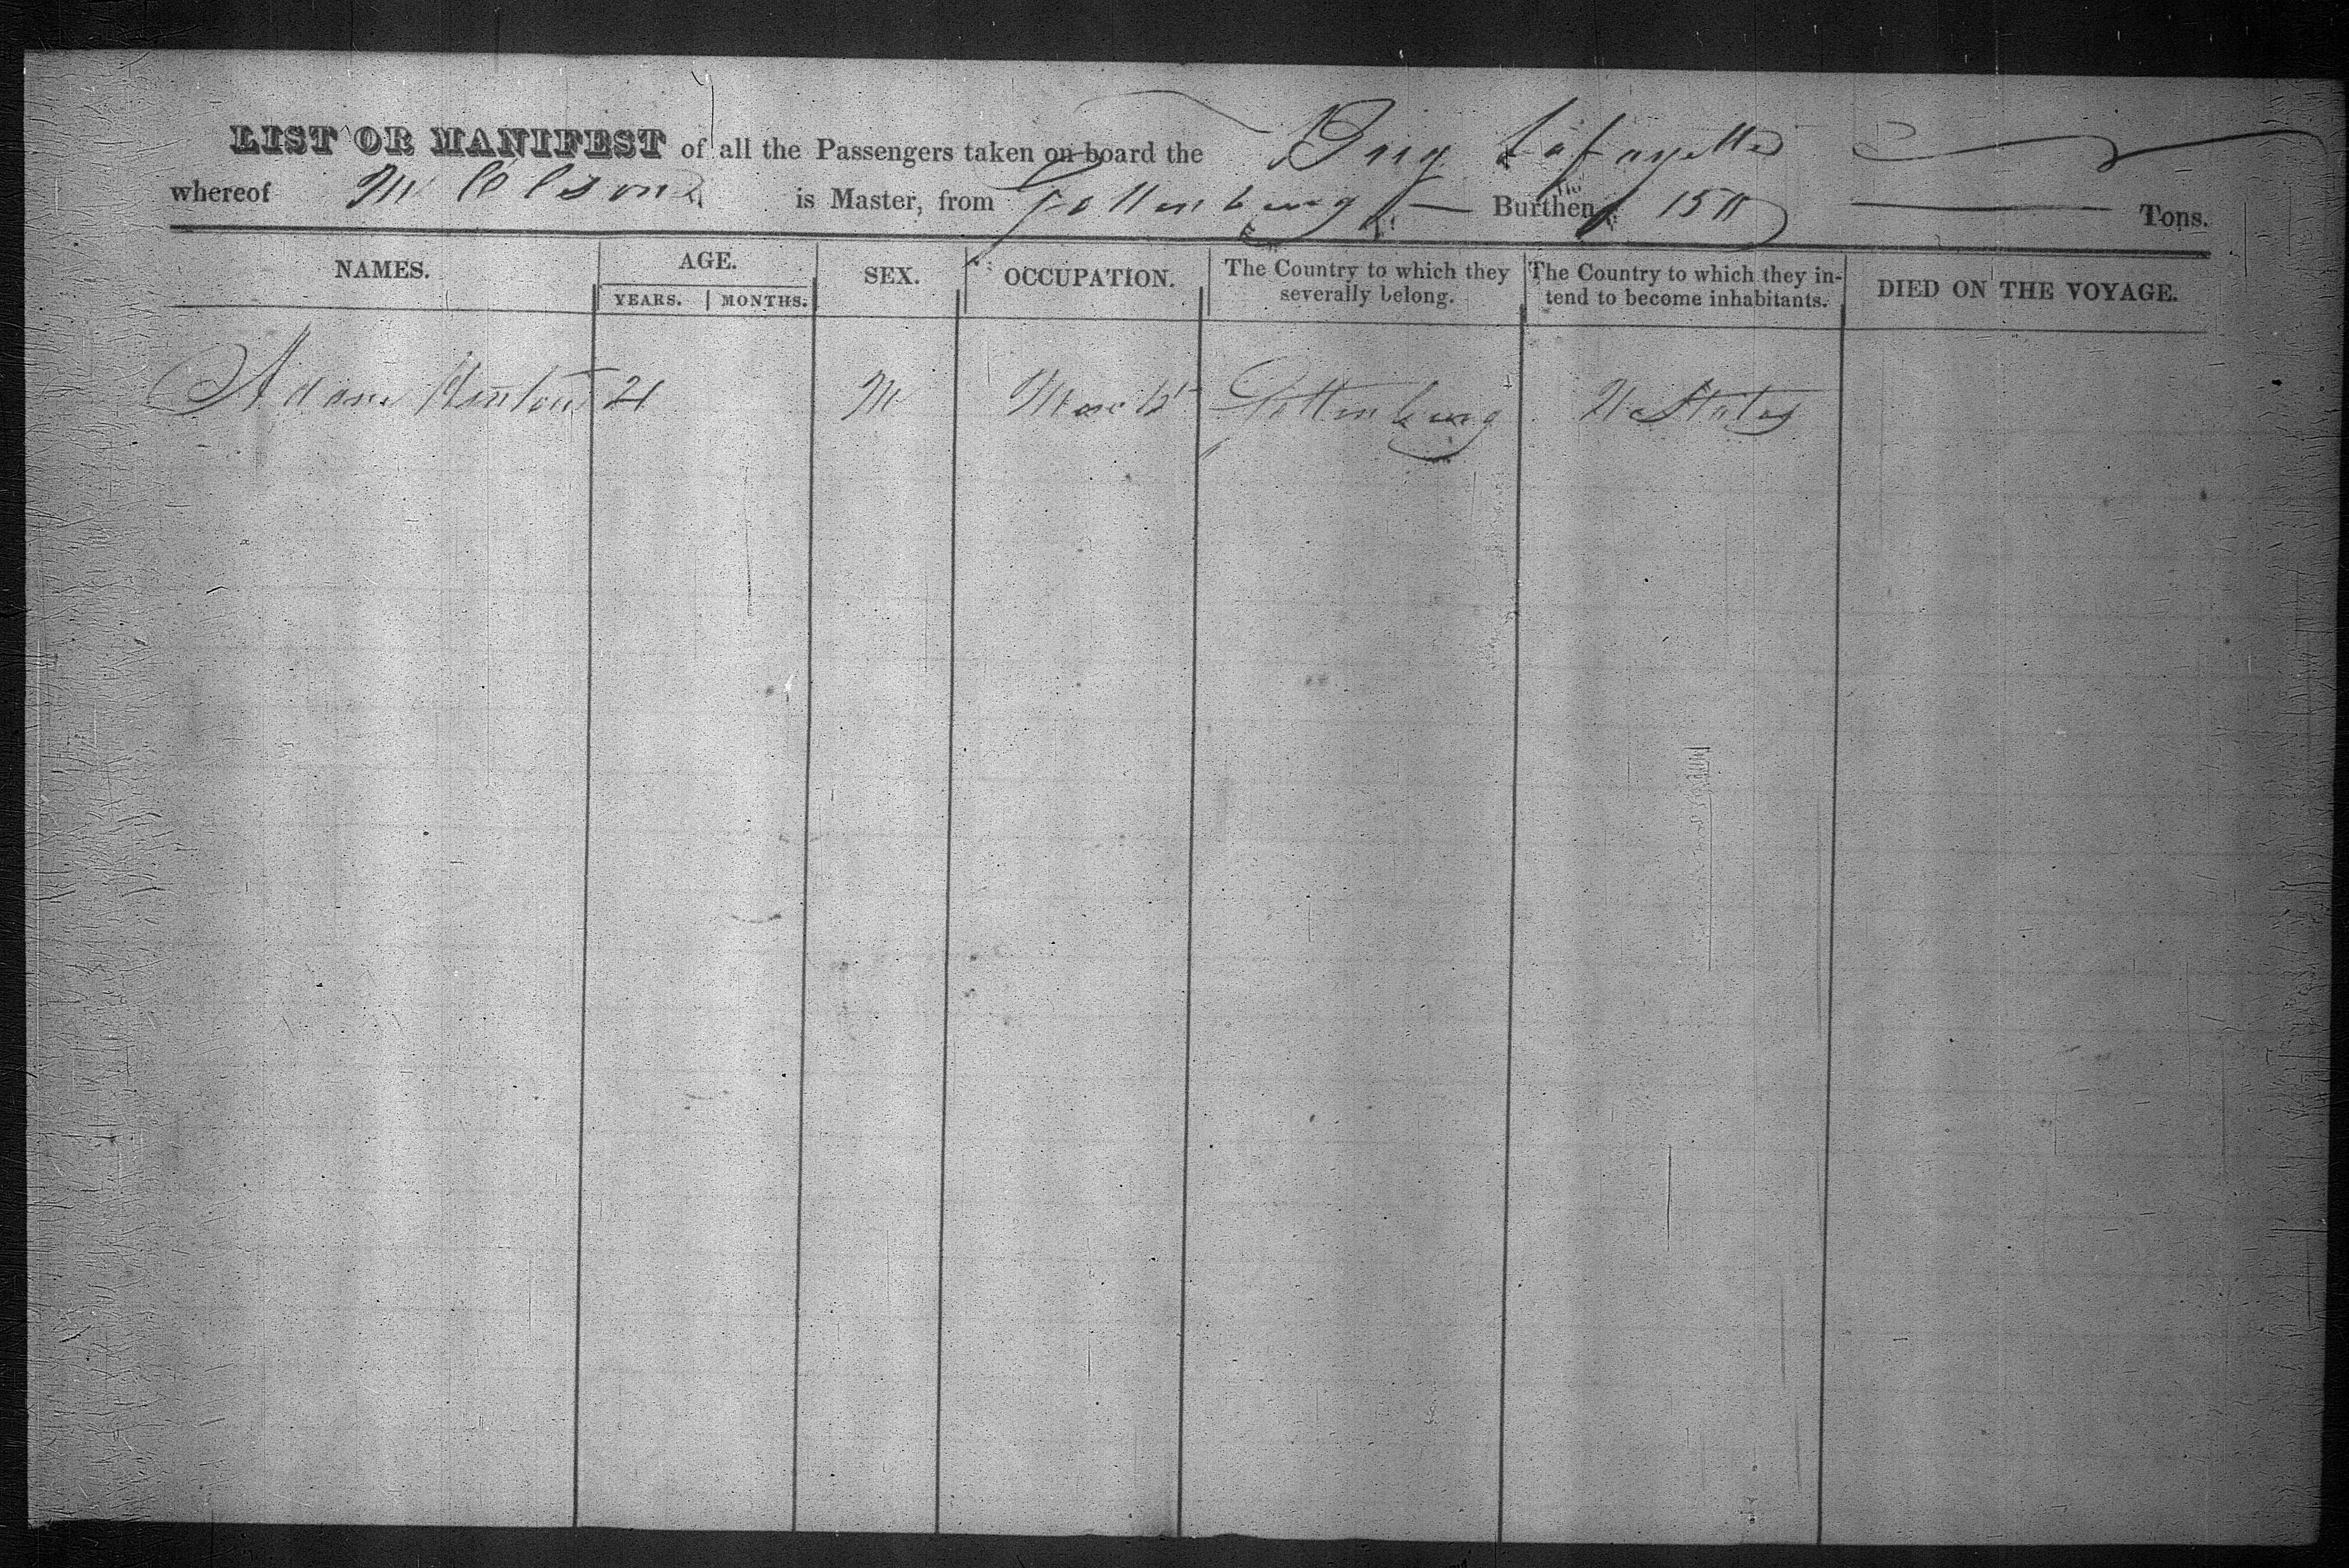 LIST OR MANIFEST of all the Passengers taken on board the Brig Lafayette
whereof M Olson is Master, from Gottenburg Burthen 150 Tons.
NAMES. AGE. YEARS. MONTHS. SEX. OCCUPATION. The Country to which they severally belong. The Country to which they intend to become inhabitants. DIED ON THE VOYAGE.
Adam 21 M Mercht Gottenburg U States